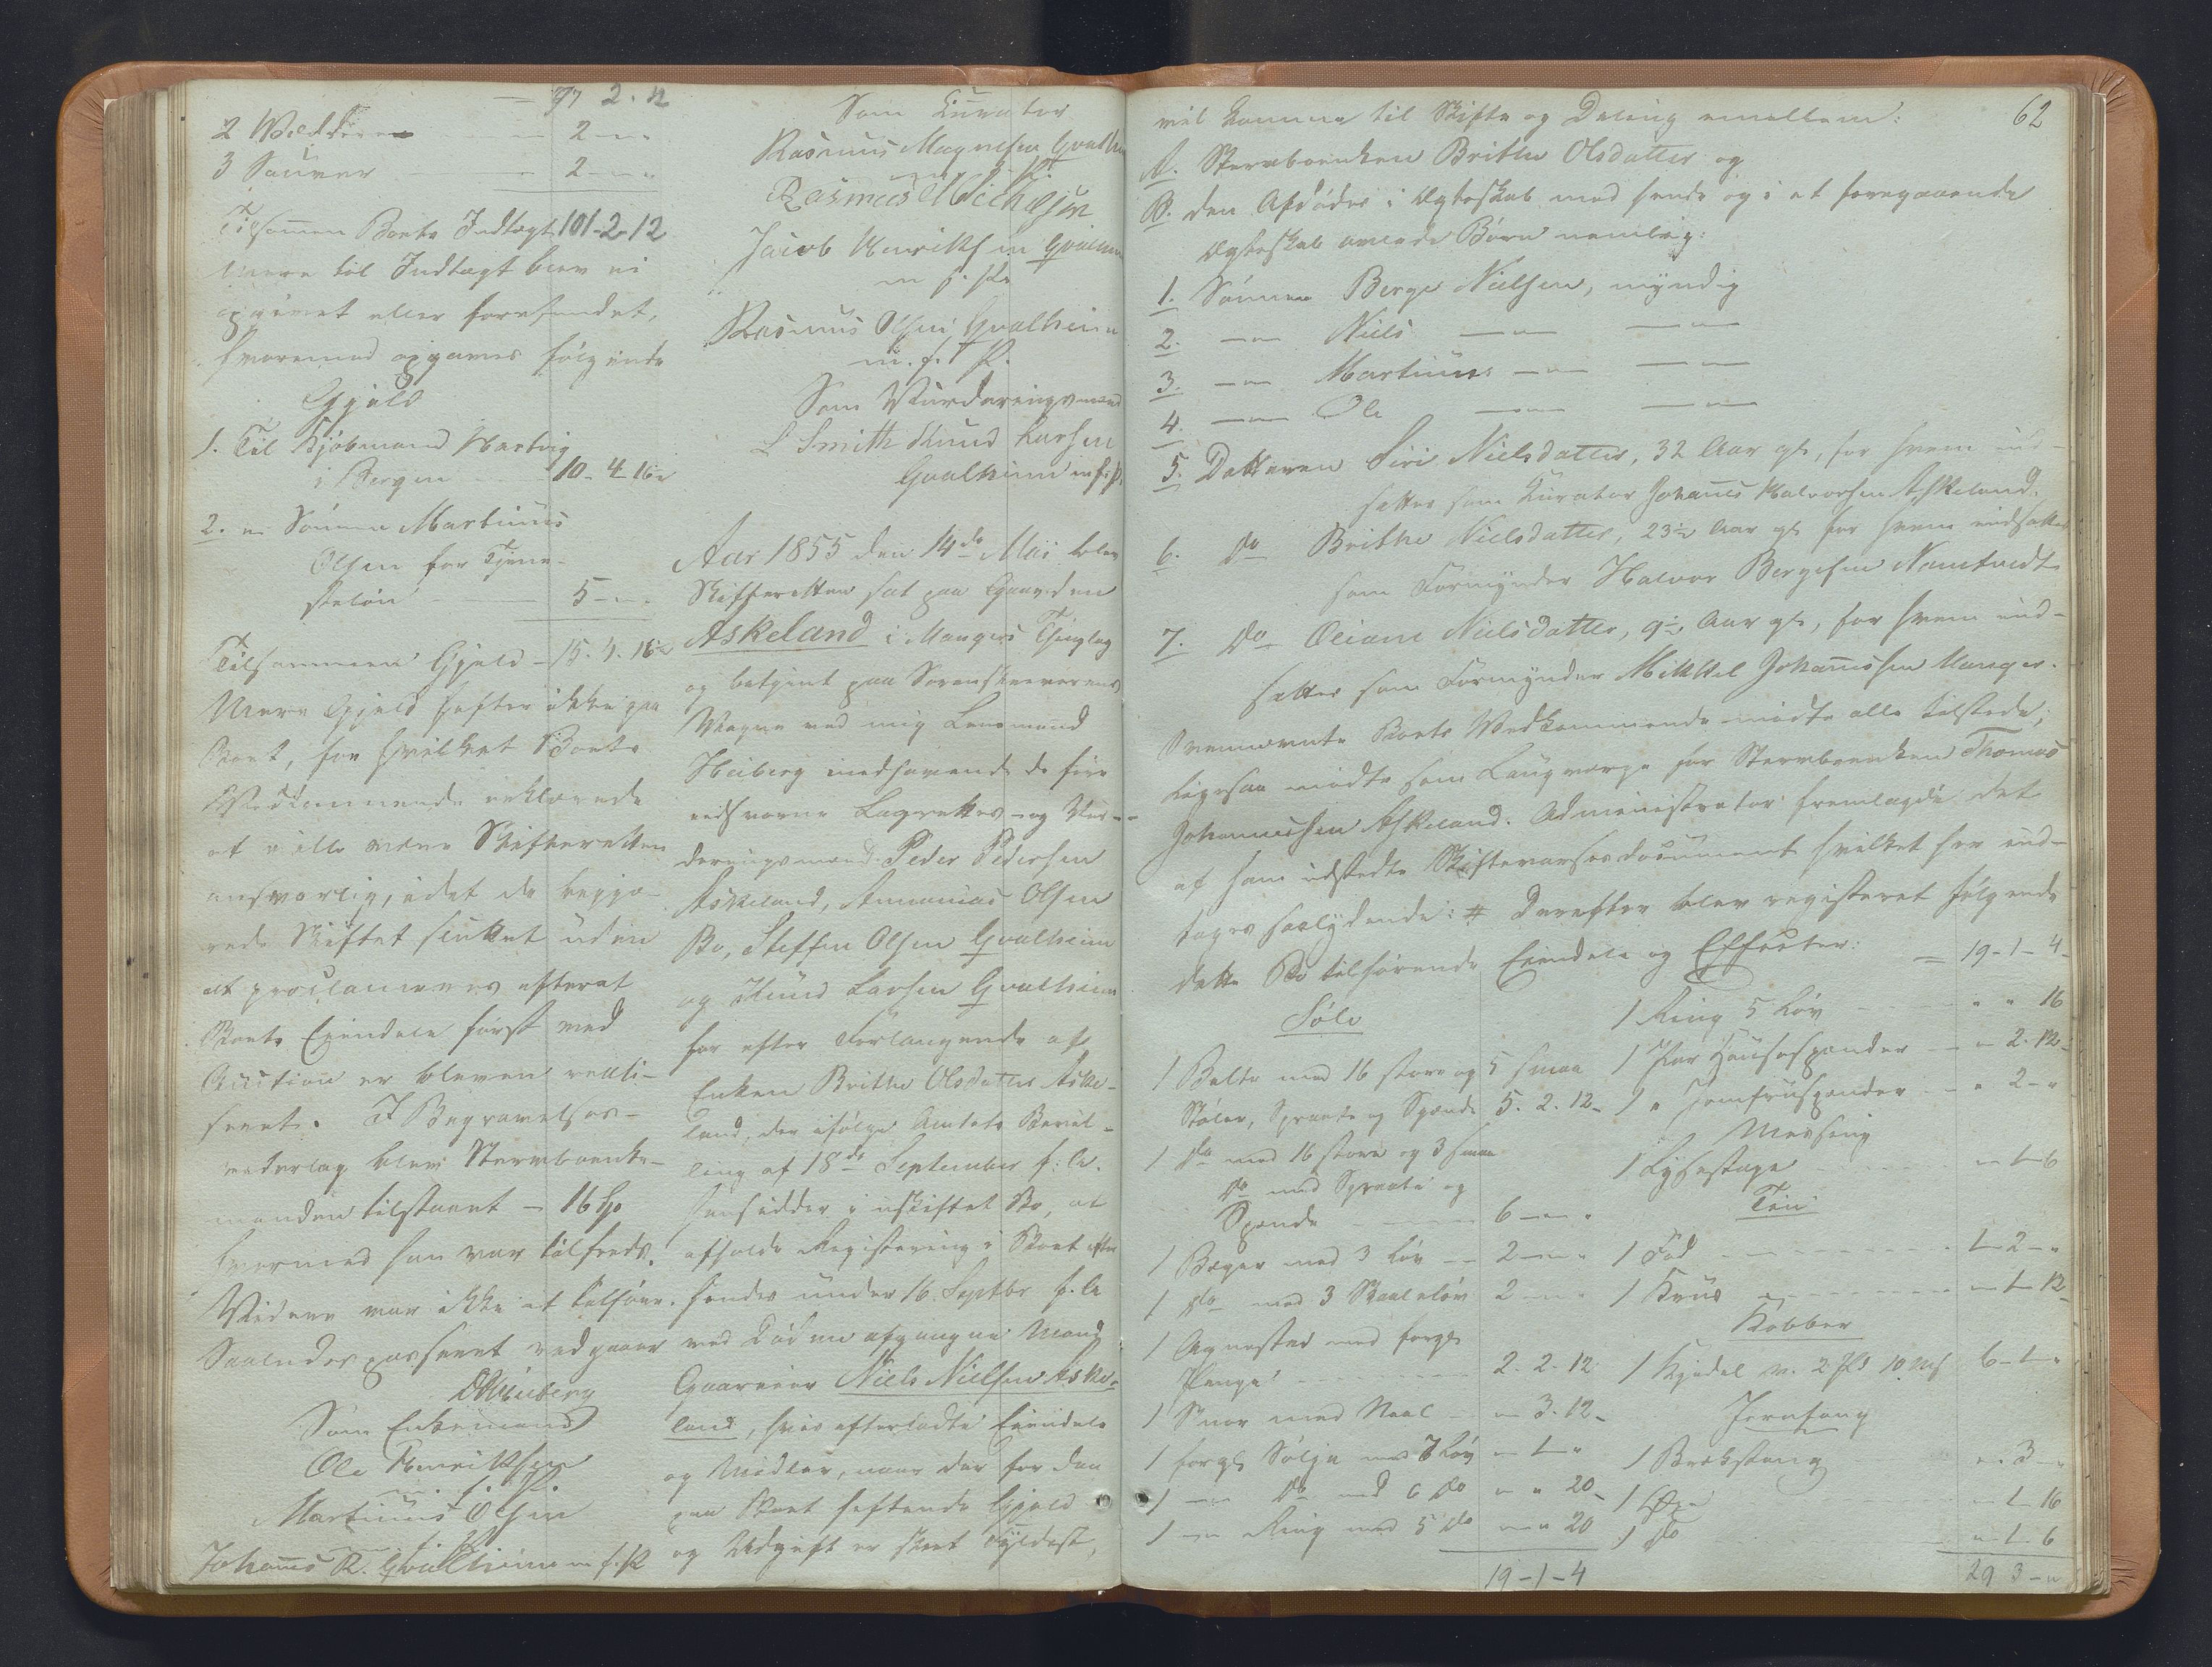 — 97 2. 12
2 Væddere — 2 - " -
3 Sauer — 2 - " "
Tilsammen Boets Indtægt 101-2-12
Mere til Indtægt blev ei
opgivet eller forefundet,
hvoremod opgaves følgende
Gjæld
1. Til Kjøbmand Hartvig
i Bergen — 10-4-16
2. " Sønnen Martinus
Olsen for Tjene-
steløn — 5 - " -
Tilsammen Gjæld - 15. 4. 16
Mere Gjæld hefter ikke paa
Boet, for hvilket Boets
Vedkommende erklærede
at ville være Skifteretten
ansvarlig, idet de begjæ-
rede Skiftet sluttet uden
at proclameres efterat
Boets Eiendele først ved
Auction er bleven reali-
seret. I Begravelses-
vederlag blev Sterboenke-
manden tilstaaet — 16 Sp
hvormed han var tilfreds.
Videre var ikke at tilføre.
Saaledes passeret vedgaaer
Heiberg
Som Enkemand
Ole Henriksen
m. f. P.
Martinus Olsen
m. f. P.
Johans R. Gvalheim m. f. P
Som Kurator
Rasmus Magnesen Gvalheim
m. f. P.
Rasmus Michelsen
Jacob Henriksen Gvalheim
m. f. P.
Rasmus Olsen Gvalheim
m. f. P.
Som Vurderingsmænd
L Smith Knud Larsen
Gvalheim m. f. P.
Aar 1855 den 14de Mai blev
Skifteretten sat paa Gaarden
Askeland i Mangers Thinglag
og betjent paa Sorenskriverens
Vegne ved mig Lensmand
Heiberg medhavende de fire
edsvorne Lagrettes- og Vur-
deringsmænd Peder Pedersen
Askeland, Ananias Olsen
Bø, Steffen Olsen Gvalheim
og Knud Larsen Gvalheim
for efter Forlangende af
Enken Brithe Olsdatter Aske-
land, der ifølge Amtets Bevil-
ling af 18de September f: A.
hensidder i uskiftet Bo, at
afholde Registrering i Boet efter
hendes under 16 Septbr f. A
ved Døden afgangne Mand
Gaardeier Niels Nielsen Aske-
land, hvis efterladte Eiendele
og Midler, naar der for den
paa Boet heftende Gjæld
og Udgift er skeet Fyldest,
62
vil komme til Skifte og Deling emellem:
A. Sterboenken Brithe Olsdatter og
B. den Afdødes i Ægteskab med hende og i et foregaaende
Ægteskab avlede Børn nemlig:
1. Sønnen Berge Nielsen, myndig
2. — " — Niels — " — — " —
3. — " — Martinus — " — — " —
4. — " — Ole — " — — " —
5. Datteren Siri Nielsdatter, 32 Aar gl, for hvem ind-
sættes som Kurator Johanes Halvorsen Askeland.
6. Do Brithe Nielsdatter, 23 1/2 Aar gl for hvem indsættes
som Formynder Halvor Bergesen Namtvedt
7. Do Oliane Nielsdatter, 9 1/2 Aar gl, for hvem ind-
sættes som Formynder Mikkel Johanessen Manger.
Ovennævnte Boets Vedkommende mødte alle tilstede,
ligesaa mødte som Laugværge for Sterboenken Thomas
Johannessen Askeland. Administrator fremlagde det
af ham udstedte Skiftevarselsdocument hvilket her ind-
tages saalydende: # Derefter blev registeret følgende
dette Bo tilhørende Eiendele og Effecter:
Sølv
1 Belte med 16 store og 5 smaa
Støler, Spraate og Spænde 5. 2. 12
1 Do med 16 store og 3 smaa
Do med Spraate og
Spænde — 6 - " - "
1 Bæger med 3 Løv — 2 - " - "
1 Do med 3 Skaalløv 2 - " - "
1 Agnestas med forgt
Penge — 2. 2. 12
1 Snor med Naal — " 3. 12
1 forgt Sølje med 7 Løv " 1 - "
1 — " — Do med 6 Do " " 20
1 — " — Ring med 5 Do " " 20
19 - 1 - 4
— 19-1-4
1 Ring 5 Løv — " " 16
1 Par Halsespænder — " 2. 12
1 " Jomfruspænder — " 2 - "
Messing
1 Lysestage — " 1-6
Tin
1 Fad — 1-2-"
1 Kruus — " 1-12
Kobber
1 Kjedel v. 2 Pd 10 Mk 6-1-"
Jernfang
1 Brækstang — " 3 - "
1 Øxe — " 1-16
1 Do — " 1-6
29 3 - "